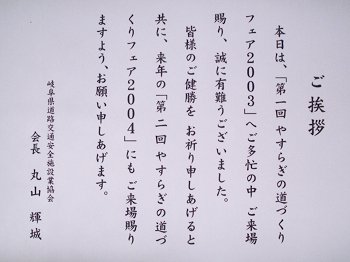 ご挨拶
本日は、「第一回 やすらぎの道づくり
フェア2003」へご多忙の中 ご来場
賜り、誠に有難うございました。
皆様のご健勝を お祈り申しあげると
共に、来年の「第二回 やすらぎの道づ
くりフェア2004」にも ご来場賜り
ますよう、お願い申しあげます。
岐阜県道路交通安全施設業協会
会長 丸山 輝城